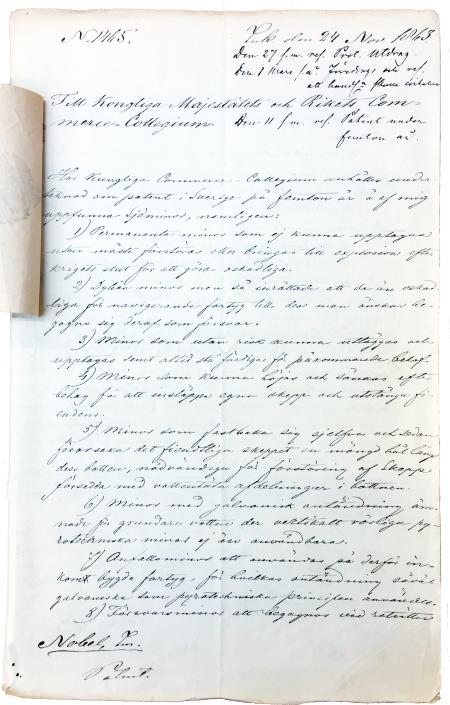 N. 1465.
Ink. den 24 Nov. 1863.
Den 27 f.m. ref. Prot. Utdrag.
Den 1 Mars
Till Kongliga Majestätets och Rikets Com-
merce-Collegium.
Den 11 f.m. ref. Patent under
femton år.
Hos Kungliga Commerce-Collegium anhålles under-
tecknad om patent i Sverige på femton år å af mig
uppfunna Sjöminor, nemligen:
1) Permanenta minor som ej kunna upptagas
utan måste förstöras eller bringas till explosion efter
krigets slut för att göras oskadliga.
2) Dylika minor men så inrättade att de äro oskad-
liga för navigerande fartyg tills dess man önskar be-
gagna sig deraf som försvar.
3) Minor som utan risk kunna utläggas och
upptagas samt alltid stå färdiga för påkommande behof.
4) Minor som kunna höjas och sänkas efter
behag för att insläppa egna skepp och utstänga fi-
endens.
5) Minor som fasthaka sig sjelfva och sedan
förorsaka det fiendtliga skeppet en mängd hål längs
dess botten, nödvändiga för förstöring af skepp
försedda med vattentäta afdelningar i bottnen.
6) Minor med galvanisk antändning äm-
nade för grundare vatten der vertikalt rörliga py-
rotekniska minor ej äro användbara.
7) Anfallsminor att användas på derför en-
komt bygda fartyg, för hvilkas antändning såväl
galvaniska som pyrotechniska principen användes.
8) Försvarsminor att begagnas vid reträtter
Nobel, Im.
Patent.